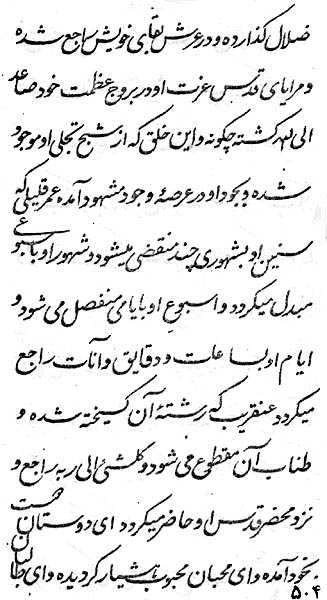 ضلال گذارده و در عرش بقای خویش راجع شده
و مرایای قدس عزت او در بروج عظمت خود صاعد
الی الله گشته چگونه و این خلق که از شبح تجلی او موجود
شده و بجود او در عرصهٔ وجود مشهود آمده عمر قلیلی که
سنین او بشهوری چند منقضی میشود و شهور او باسبوعی
مبدل میگردد و اسبوع او بایامی منفصل می شود و
ایام او بساعات و دقایق و آنات راجع
میگردد عنقریب که رشتهٔ آن گسیخته شده و
طناب آن مقطوع می شود و کلشئ الی ربه راجع و
نزد محضر قدس او حاضر میگردد ای دوستان همت
بخود آمده و ای محبان محبوب هشیار گردیده و ای طالبان
۵۰۴